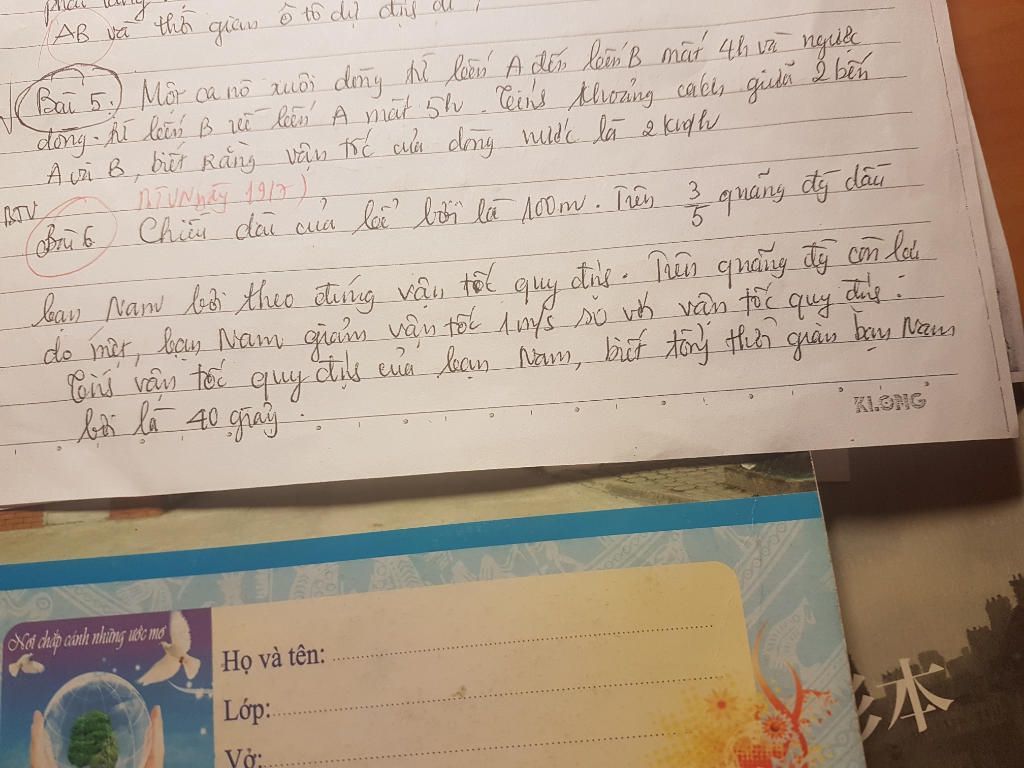 AB và thời gian ô tô dự định đi
Bài 5: Một ca nô xuôi dòng từ bến A đến bến B mất 4h và ngược
dòng từ bến B về bến A mất 5h. Tính khoảng cách giữa 2 bến
A và B, biết rằng vận tốc của dòng nước là 2km/h
BTVN ngày 19/7)
BTV
Bài 6 Chiều dài của bể bơi là 100m. Trên 3/5 quãng đg đầu
bạn Nam bơi theo đúng vận tốc quy định. Trên quãng đg còn lại
do mệt, bạn Nam giảm vận tốc 1m/s so với vận tốc quy định.
Tính vận tốc quy định của bạn Nam, biết tổng thời gian bạn Nam
bơi là 40 giây.
KLONG
Nơi chắp cánh những ước mơ
Họ và tên:
Lớp:
Vở:
本